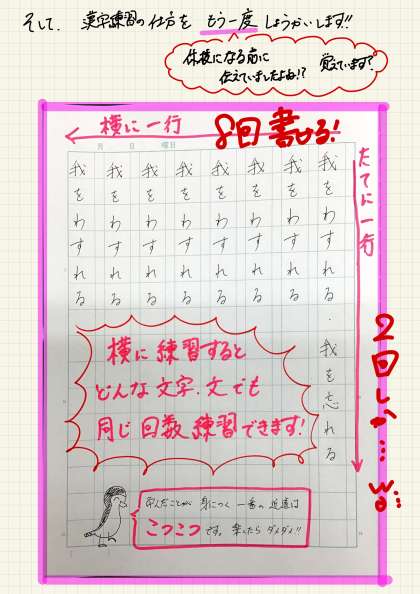 そして、漢字練習の仕方を もう一度 しょうかいします!!
休校になる前に
伝えていましたよね!? 覚えています?
横に一行
8回書ける!
月 日 曜日
たてに一行
我をわすれる・我を忘れる
我をわすれる
我をわすれる
我をわすれる
我をわすれる
我をわすれる
我をわすれる
我をわすれる
2回しか…
横に練習すると
どんな文字、文でも
同じ回数練習できます!
学んだことが 身につく 一番の近道は
こつこつです。楽したら ダメダメ!!